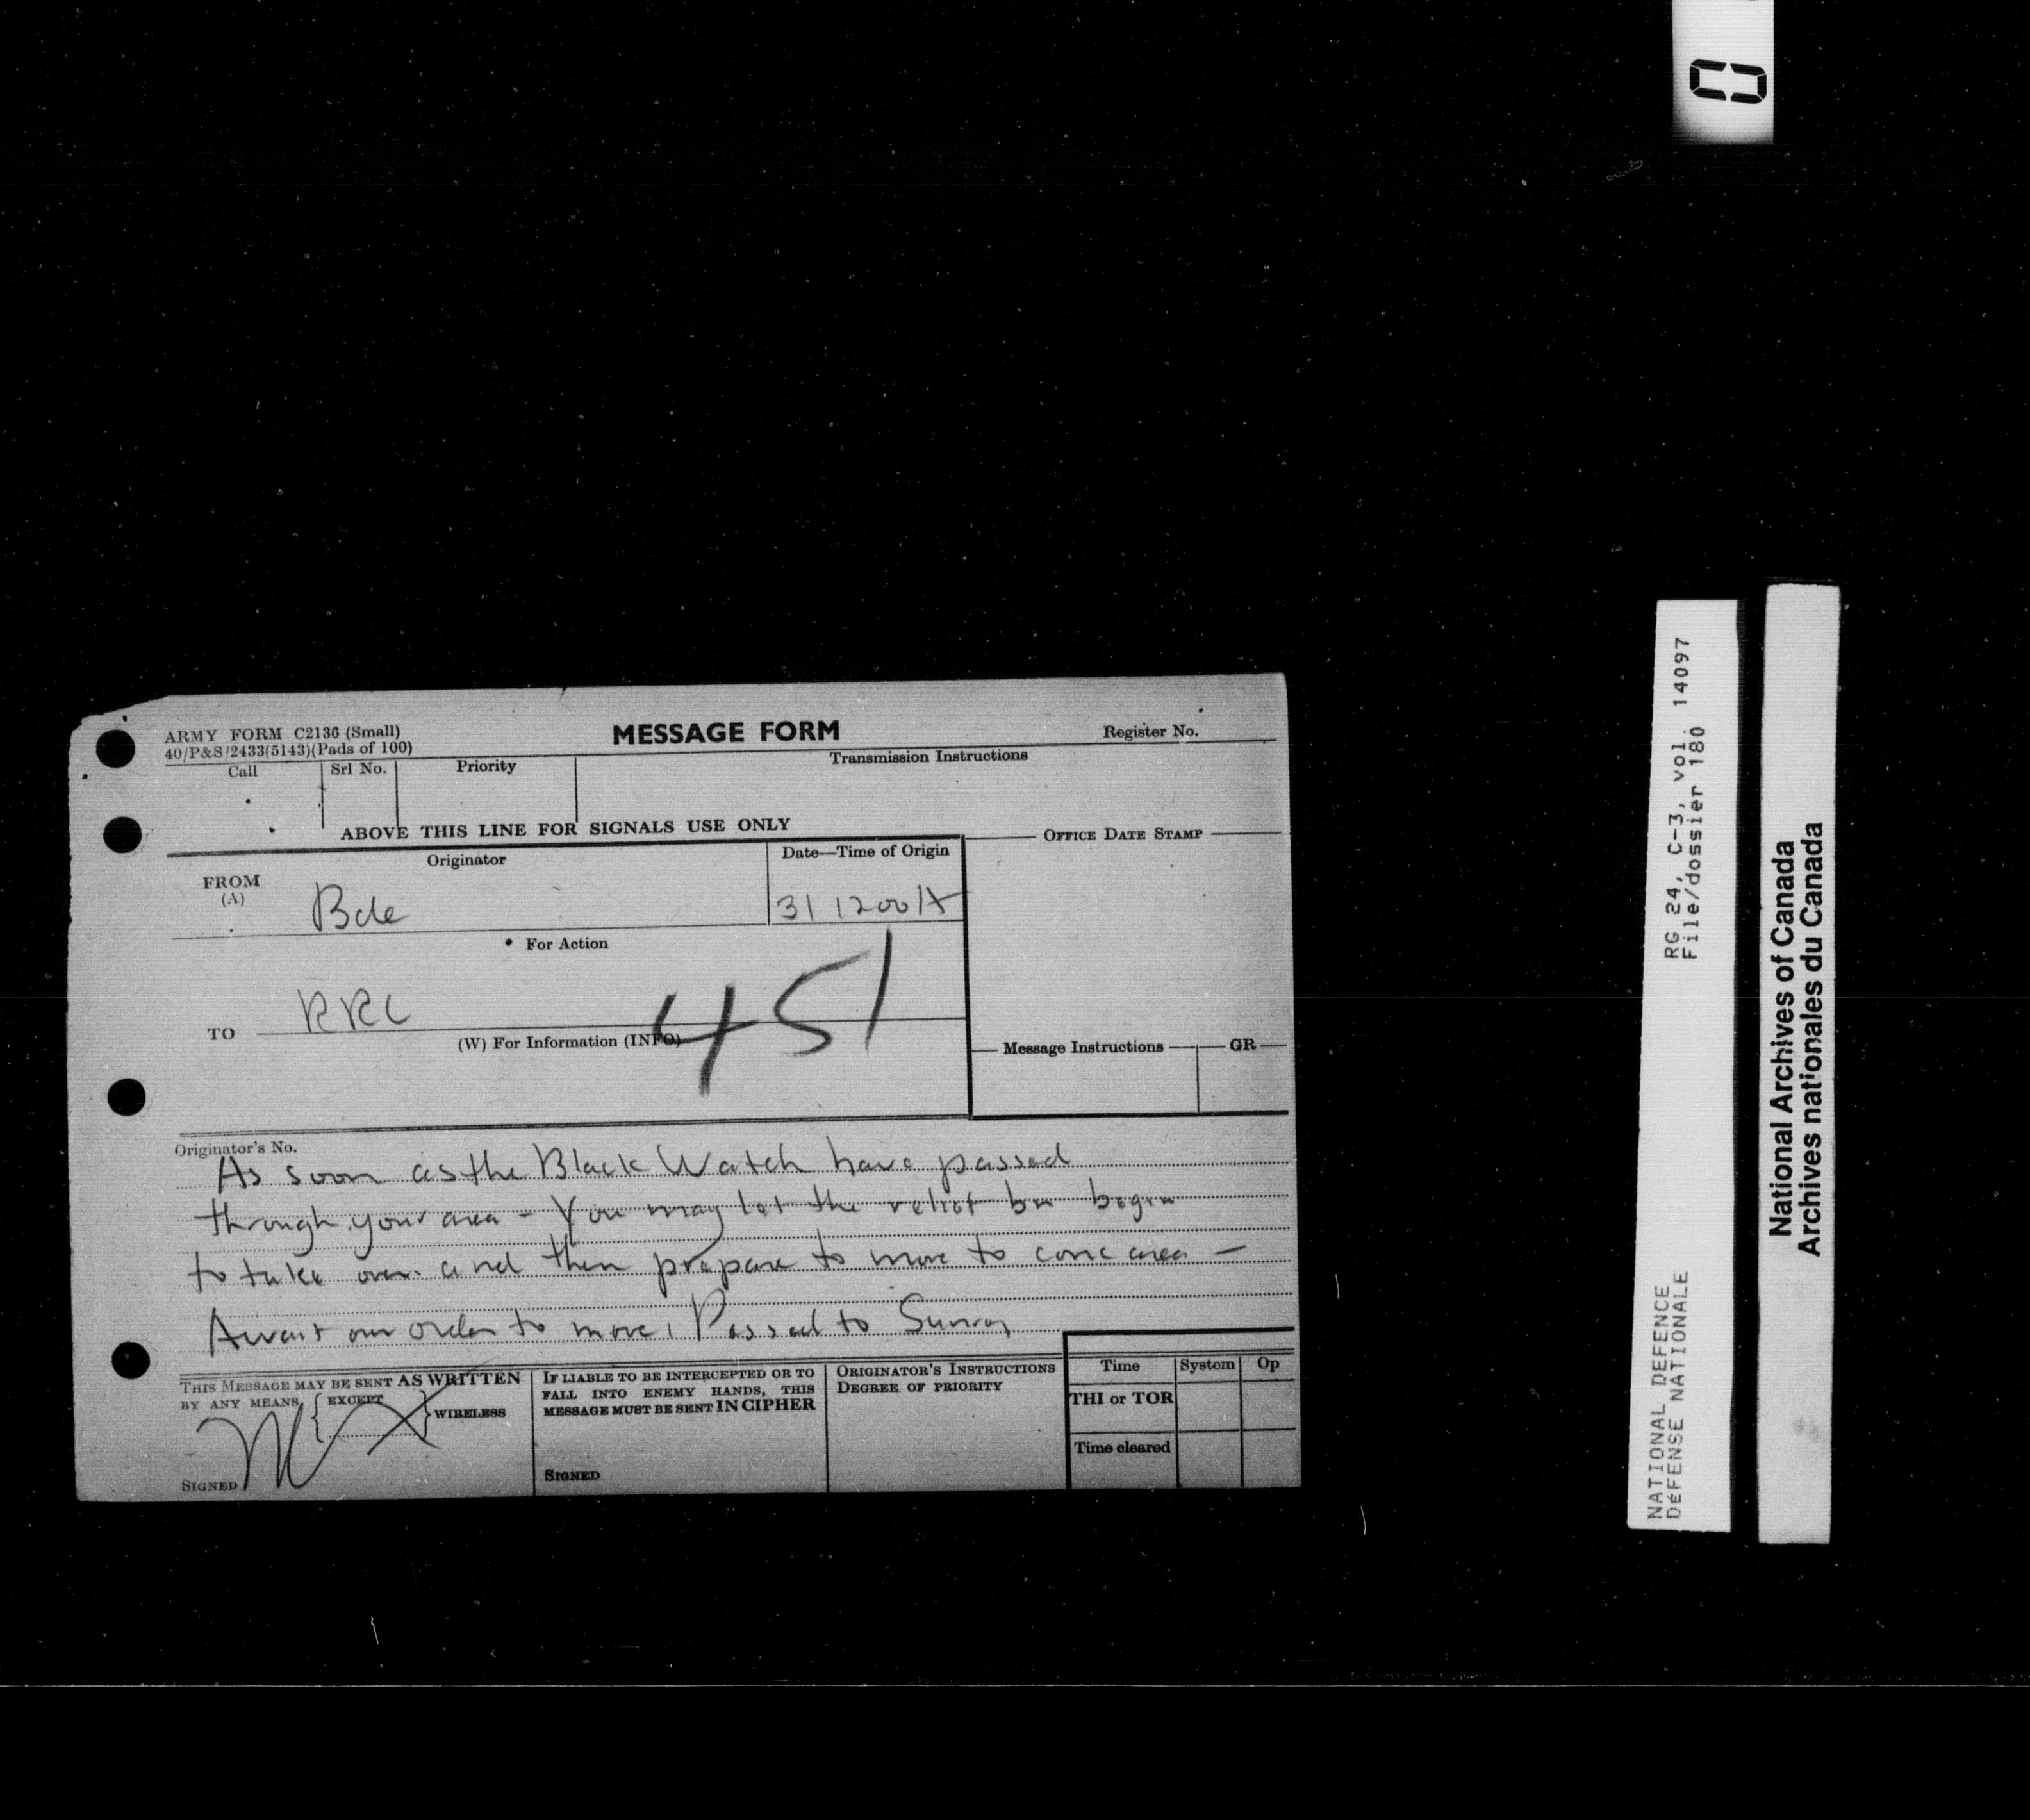 ARMY FORM C2136 (Small)
40/P&S/2433(5143)(Pads of 100)
MESSAGE FORM
Register No.
Call
Srl No.
Priority
Transmission Instructions
ABOVE THIS LINE FOR SIGNALS USE ONLY
OFFICE DATE STAMP
Originator
Date—Time of Origin
FROM
(A)
Bde
31 1200 A
For Action
TO
RRC
451
(W) For Information (INFO)
Message Instructions
GR
Originator's No.
As soon as the Black Watch have passed
through your area - You may let the relief bn begin
to take over and then prepare to move to conc area -
Await our order to move, Passed to Sunray
THIS MESSAGE MAY BE SENT AS WRITTEN
BY ANY MEANS
EXCEPT
WIRELESS
SIGNED
IF LIABLE TO BE INTERCEPTED OR TO
FALL INTO ENEMY HANDS, THIS
MESSAGE MUST BE SENT IN CIPHER
SIGNED
ORIGINATOR'S INSTRUCTIONS
DEGREE OF PRIORITY
Time
System
Op
THI or TOR
Time cleared
RG 24, C-3, vol. 14097
File/dossier 180
NATIONAL DEFENCE
DÉFENSE NATIONALE
National Archives of Canada
Archives nationales du Canada